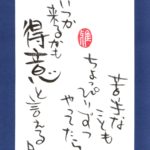 苦手な
ことも
ちょっぴりずつ
やってたら
いつか
来るかも
得意
と言える